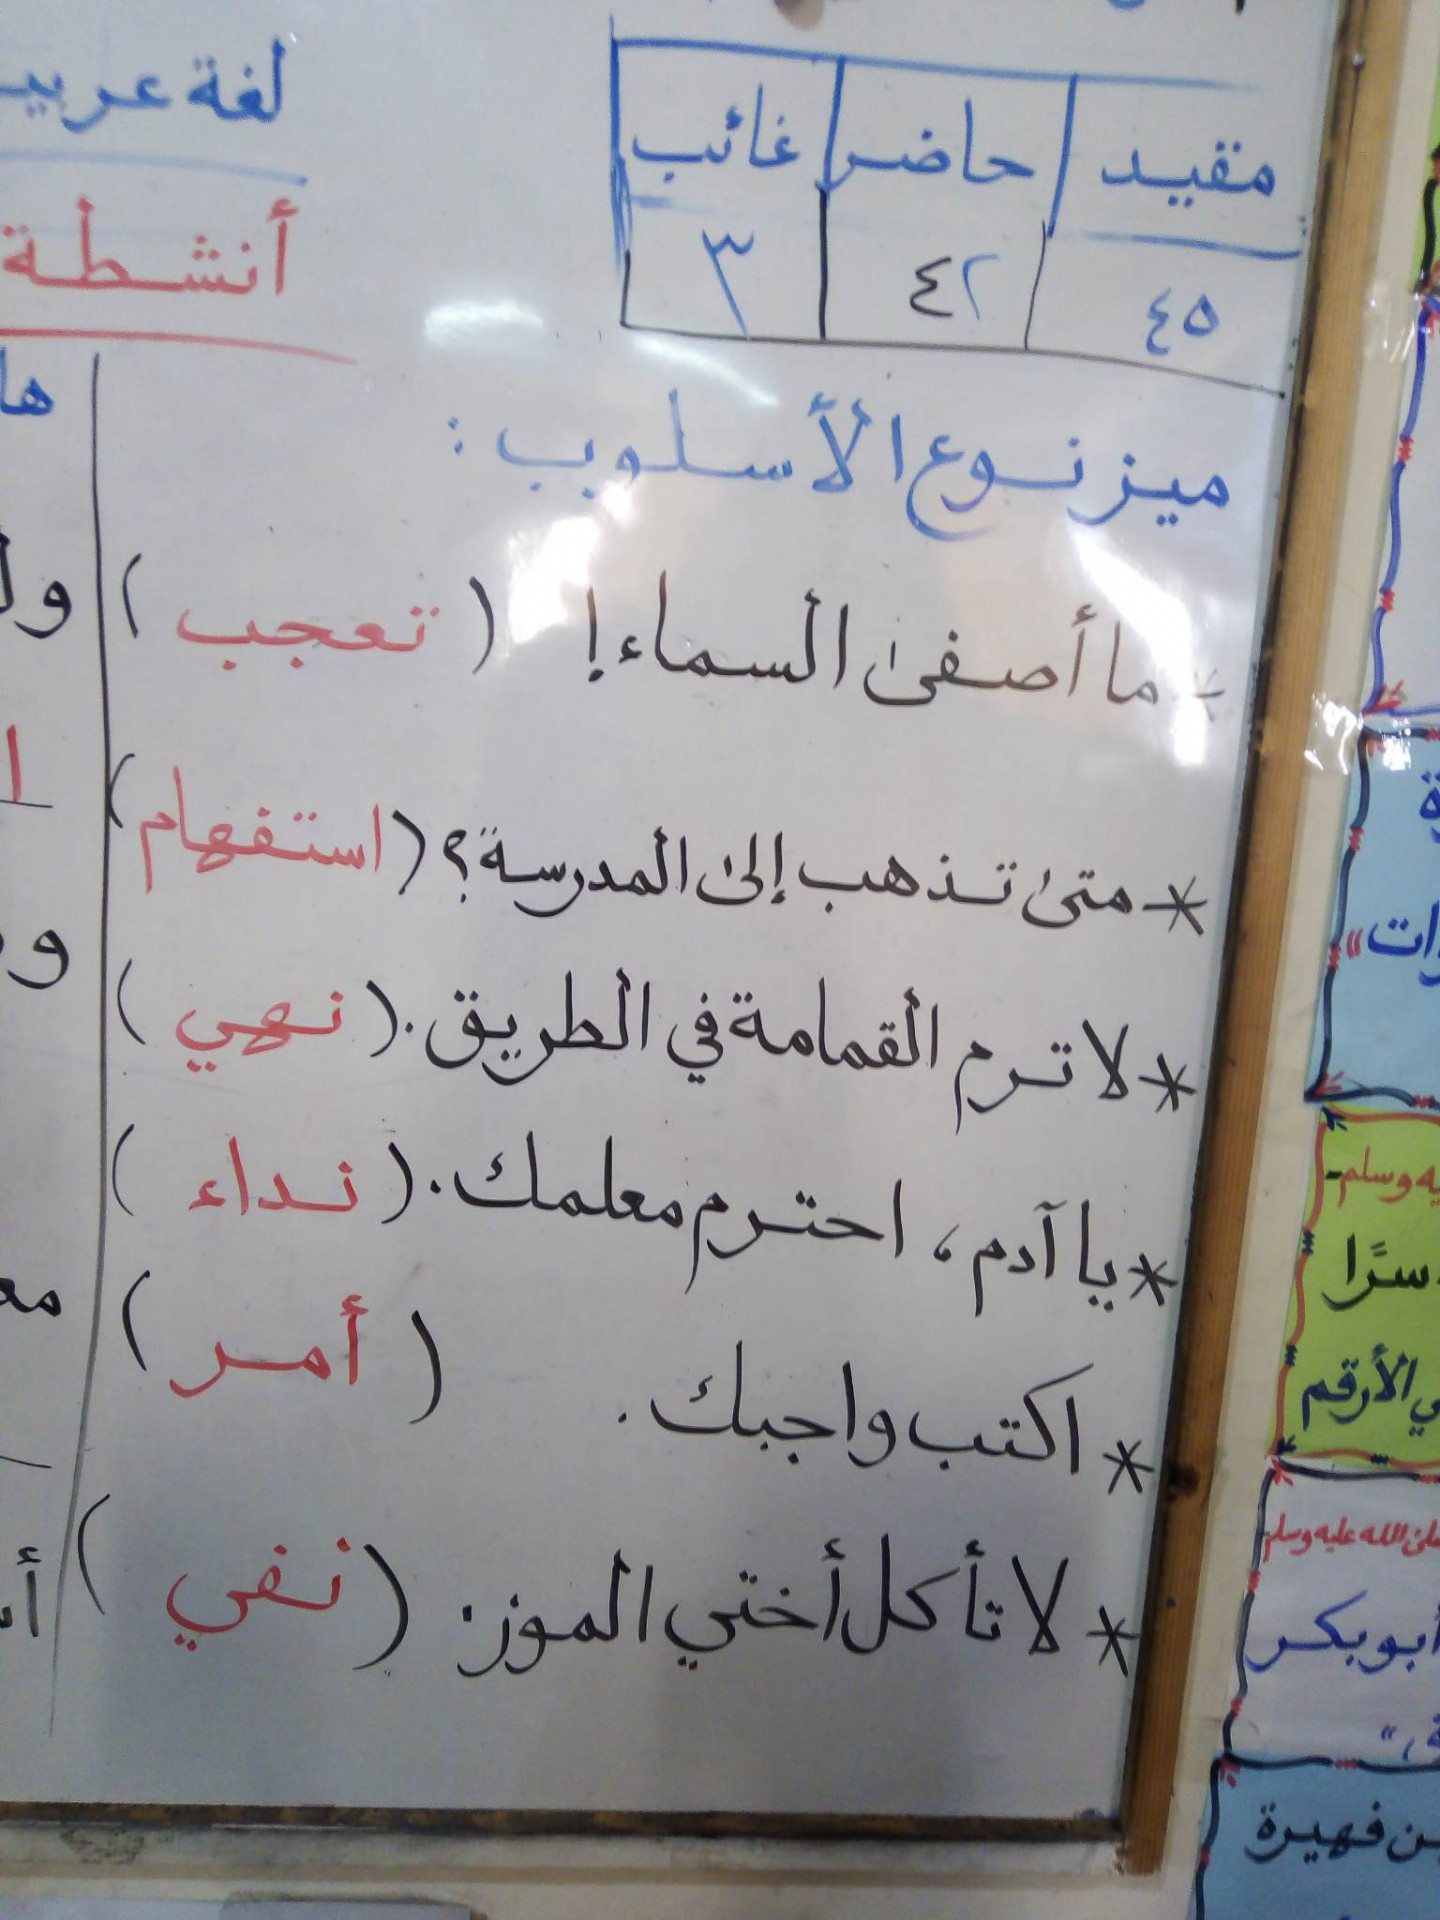 مقيد حاضر غائب
٤٥ ٤٢ ٣
لغة
أنشطة
ميز نوع الأسلوب :
* ما أصفى السماء ! ( تعجب )
* متى تذهب إلى المدرسة ؟ ( استفهام )
* لا ترم القمامة في الطريق . ( نهي )
* يا آدم ، احترم معلمك . ( نداء )
* اكتب واجبك . ( أمر )
* لا تأكل أختي الموز . ( نفي )
وسلم
سرًا
الأرقم
الله عليه وسلم
أبو بكر
فهيرة